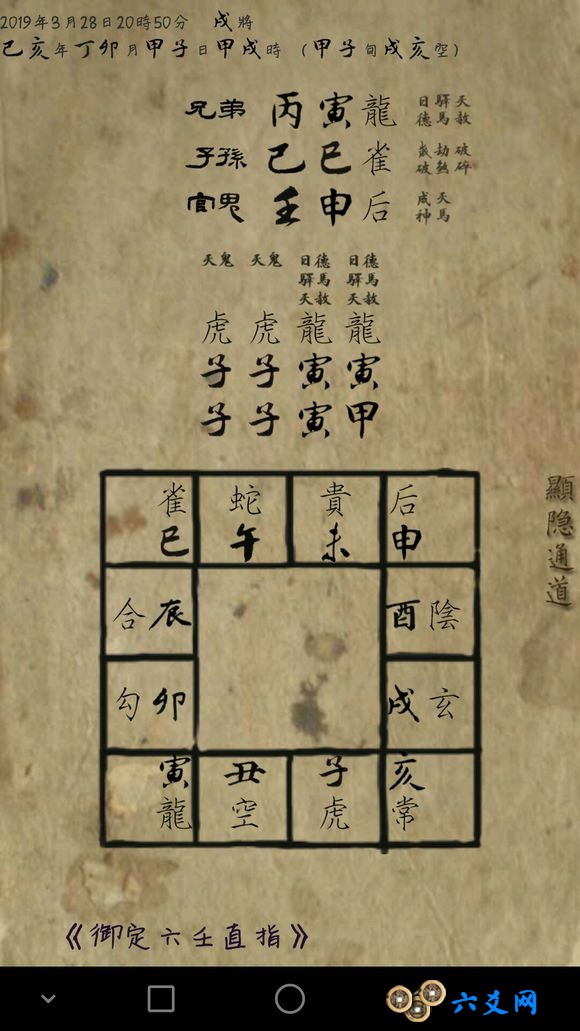 2019年3月28日20時50分 戌將
己亥年丁卯月甲子日甲戌時 (甲子旬戌亥空)
兄弟 丙寅龍 日德 驛馬 天赦
子孫 己巳雀 歲破 劫煞 破碎
官鬼 壬申后 成神 天馬
天鬼 天鬼 日德 日德
驛馬 驛馬
天赦 天赦
虎 虎 龍 龍
子 子 寅 寅
子 子 寅 甲
雀 蛇 貴 后
巳 午 未 申
合 辰 酉 陰
勾 卯 戌 玄
寅 丑 子 亥
龍 空 虎 常
顯隐通道
《御定六壬直指》
六爻网